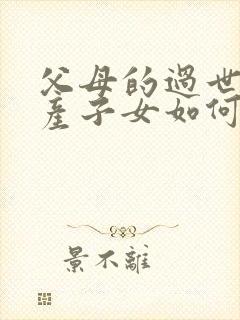 父母的過世
產子女如何
景不離